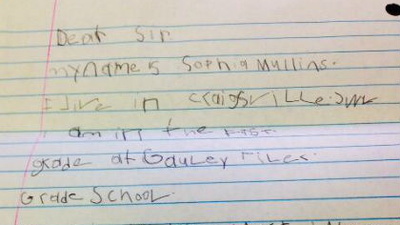 Dear Sir
my name s Sophia Mullins.
I live in craigsville
I am in the
grade at Gauley River
Grade School.